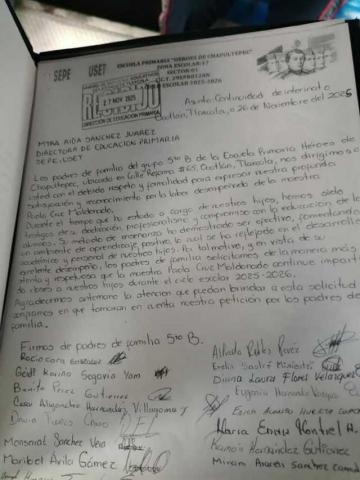 SEPE USET
ESCUELA PRIMARIA "HÉROES DE CHAPULTEPEC"
ZONA ESCOLAR 37
SECTOR 03
CICLO ESCOLAR 2025-2026
RECIBIDO
27 NOV 2025
DIRECCIÓN DE EDUCACIÓN PRIMARIA
Asunto: Continuidad de interinato
Ocotlán, Tlaxcala, a 26 de Noviembre del 2025
MTRA AIDA SANCHEZ JUAREZ
DIRECTORA DE EDUCACION PRIMARIA
SEPE-USET
Los padres de familia del grupo 5to B de la Escuela Primaria Héroes de
Chapultepec, Ubicada en Calle Reforma #65, Ocotlán, Tlaxcala, nos dirigimos a
usted con el debido respeto y formalidad para expresar nuestra profunda
satisfacción y reconocimiento por la labor desempeñada de la maestra
Paola Cruz Maldonado.
Durante el tiempo que ha estado a cargo de nuestros hijos, hemos sido
testigos de su dedicación, profesionalismo y compromiso en la educación de los
alumnos. Su método de enseñanza ha demostrado ser efectivo, fomentando
un ambiente de aprendizaje positivo, lo cual se ha reflejado en el desarrollo
académico y personal de nuestros hijos. Por tal motivo, y en vista de su
excelente desempeño, los padres de familia solicitamos de la manera más
atenta y respetuosa que la maestra Paola Cruz Maldonado continue impartiendo
a nuestros hijos durante el ciclo escolar 2025-2026.
Agradecemos antemano la atención que puedan brindar a esta solicitud
en que tomaran en cuenta nuestra petición por los padres de
familia.
Firmas de padres de familia 5to B.
Rocio Cora
Gedit Karina Segovia Yam
Benito Perez Gutierrez
Cesar Alejandro Hernández Villagomez
David Flores
Monserrat Sanchez Vera
Maribel Avila Gómez
Alfredo Robles Perez
Evelia Sastré
Diana Laura Flores Velazquez
Eugenia Hernandez Vargas
Erick
Maria Enran Montiel H.
Ramón Hernández Gutierrez
Miriam Anahis Sanchez